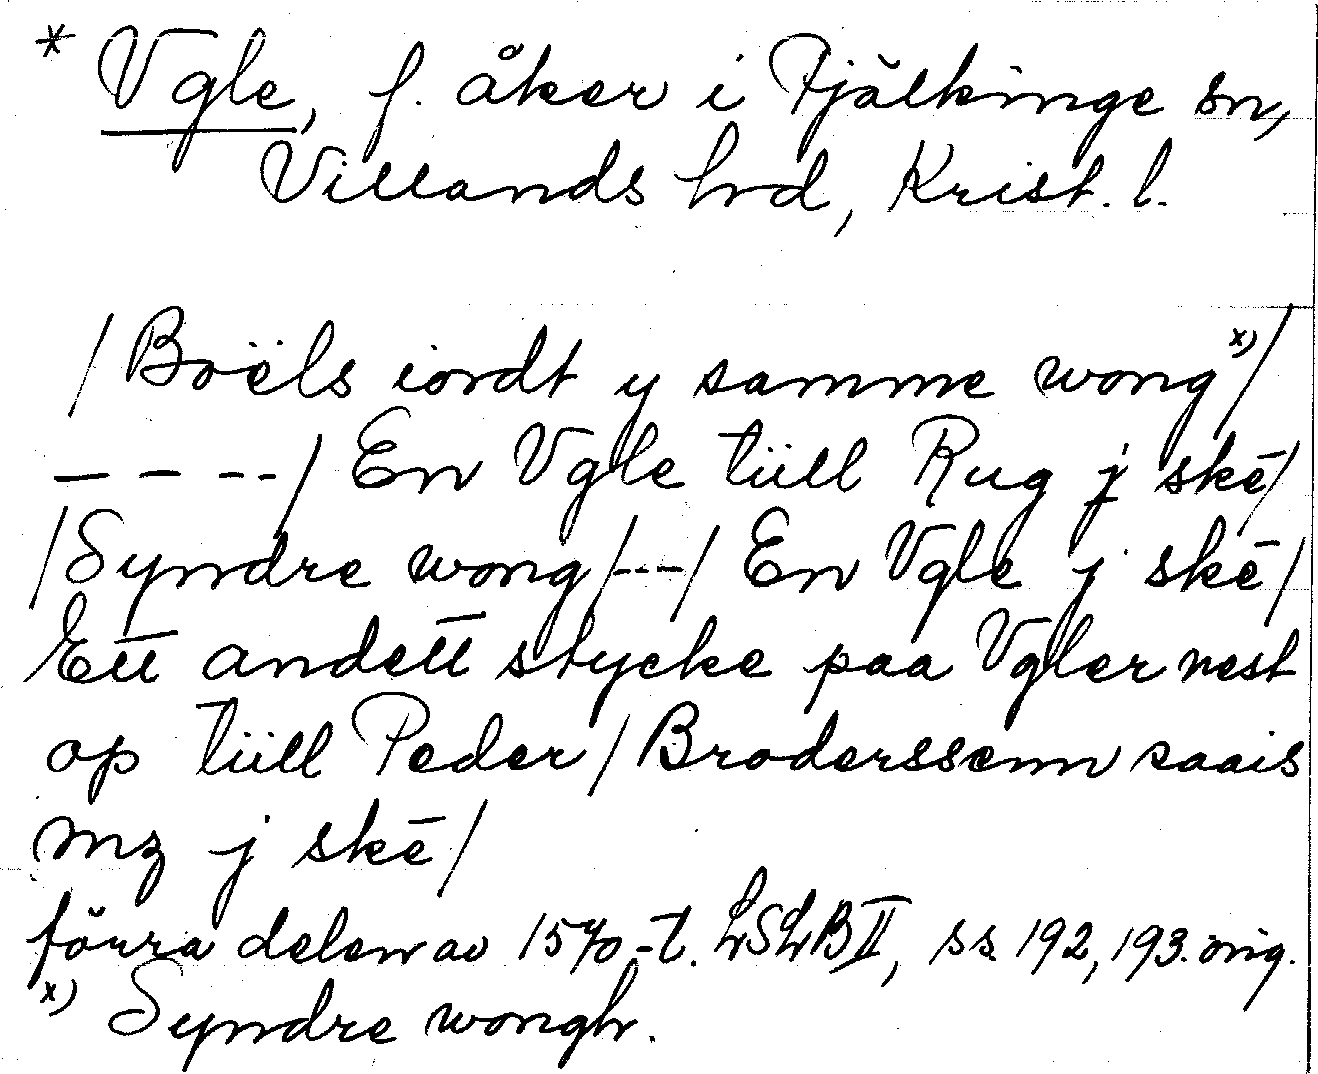 * Vgle, f. åker i Fjälkinge sn,
Villands hrd, Krist. l.
/Boëls iordt y samme wong x)/
— — - --/ En Vgle tiill Rug j skē/
/Syndre wong/---/ En Vgle j skē/
Ett andett stycke paa Vgler nest
op tiill Peder/Broderssenn saais
mz j skē/
förra delen av 1570-t. LSLB II, ss. 192, 193. orig.
x) Syndre wongh.